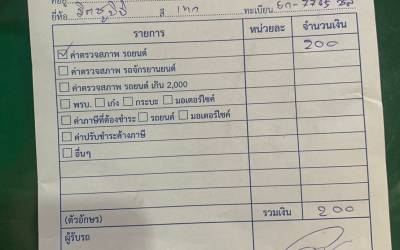 ยี่ห้อ อีซูซุ สี เทา ทะเบียน
รายการ หน่วยละ จำนวนเงิน
ค่าตรวจสภาพ รถยนต์ 200
ค่าตรวจสภาพ รถจักรยานยนต์
ค่าตรวจสภาพ รถยนต์ เกิน 2,000
พรบ. เก๋ง กระบะ มอเตอร์ไซค์
ค่าภาษีที่ต้องชำระ รถยนต์ มอเตอร์ไซค์
ค่าปรับชำระค้างภาษี
อื่นๆ
(ตัวอักษร) รวมเงิน 200
ผู้รับรถ